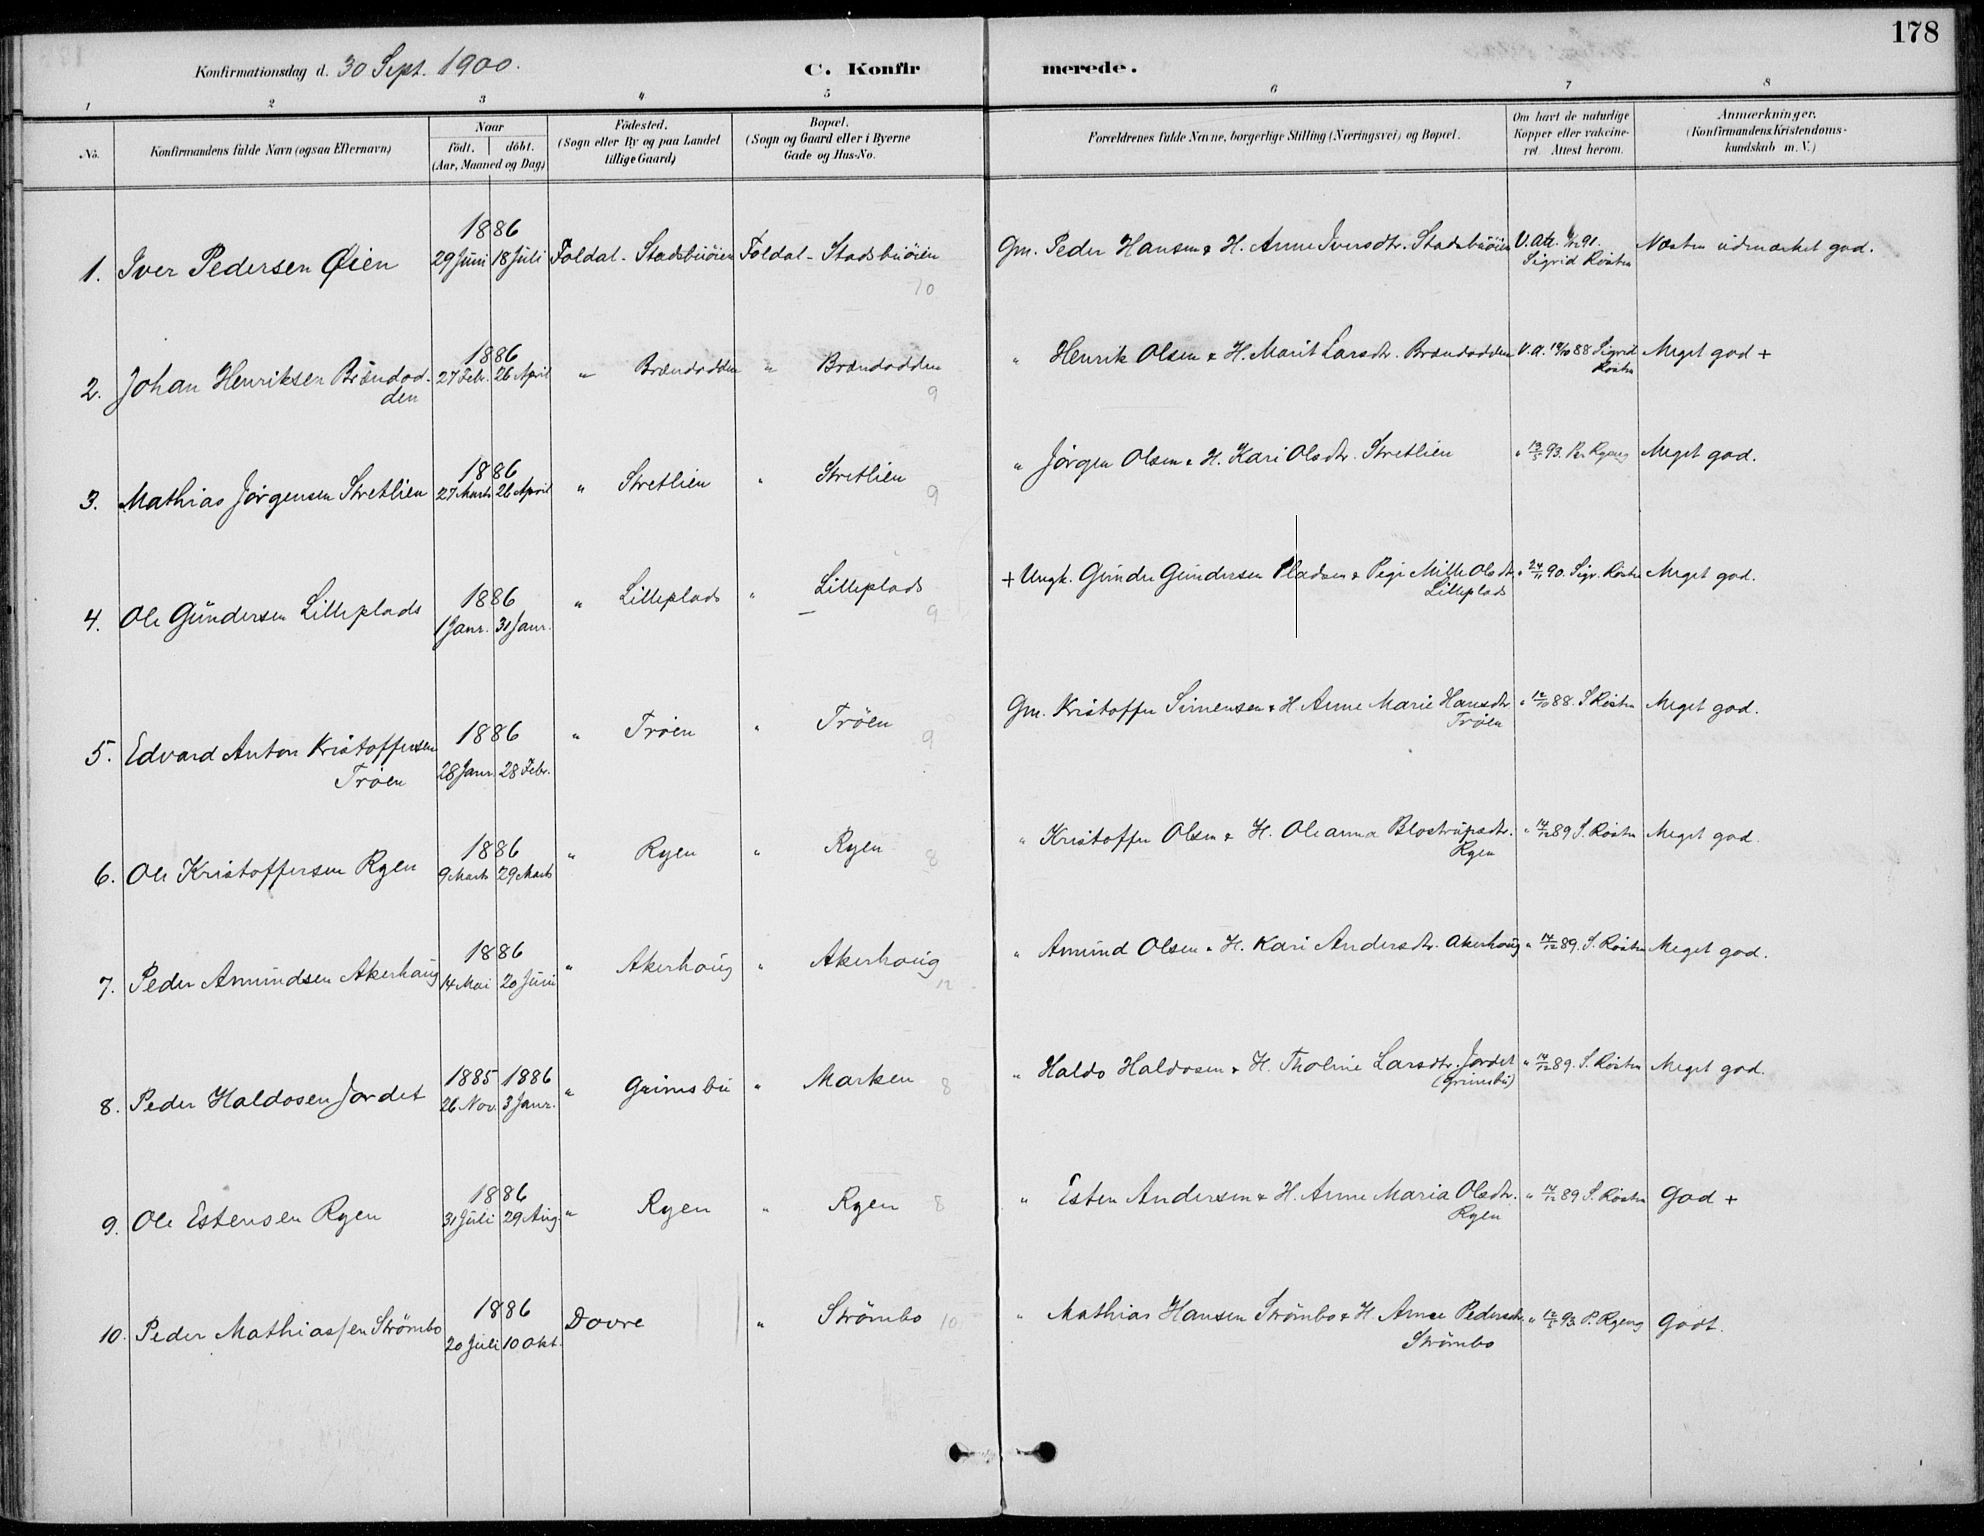 178
Konfirmationsdag d. 30 Sept. 1900.
C. Konfirmerede.
1 2 3 4 5 6 7 8
No.
Konfirmandens fulde Navn (ogsaa Efternavn)
Naar
født. døbt.
(Aar, Maaned og Dag)
Fødested.
(Sogn eller By og paa Landet
tillige Gaard)
Bopæl.
(Sogn og Gaard eller i Byerne
Gade og Hus-No.
Forældrenes fulde Navne, borgerlige Stilling (Næringsvei) og Bopæl.
Om havt de naturlige
Kopper eller vakcine-
ret. Attest herom.
Anmærkninger.
(Konfirmandens Kristendoms-
kundskab m. V.)
1. Iver Pedersen Øien 1886 29 Juni 18 Juli Foldal - Stadsbuøien Foldal - Stadsbuøien 10 Gm. Peder Hansen & H. Anne Iversdtr. Stadsbuøien V. Att. 91. Næsten udmærket god.
Sigrid Røsten
2. Johan Henriksen Brændod- 1886 27 Febr. 26 April " Brændodden " Brændodden 9 " Henrik Olsen & H. Marit Larsdtr. Brændodden V. A. 12/10 88 Sigrid Meget god +
den Røsten
3. Mathias Jørgensen Stretlien 1886 27 Marts 26 April " Stretlien " Stretlien 9 " Jørgen Olsen & H. Kari Olsdtr. Stretlien " 13/5 93. P. Ryeng Meget god.
4. Ole Gundersen Lilleplads 1886 1 Janr. 31 Janr. " Lilleplads " Lilleplads 9 + Ungk. Gunder Gundersen Pladsen & Pige Mille Olsdtr. " 24/11 90. Sigr. Røsten Meget god.
Lilleplads
5. Edvard Anton Kristoffersen 1886 28 Janr. 28 Febr. " Trøen " Trøen 9 Gm. Kristoffer Simensen & H. Anne Marie Hansdtr. " 12/10 88. S. Røsten Meget god.
Trøen Trøen
6. Ole Kristoffersen Ryen 1886 9 Marts 29 Marts " Ryen " Ryen 8 " Kristoffer Olsen & H. Oleanna Blostrupsdtr. " 14/12 89 S. Røsten Meget god.
Ryen
7. Peder Amundsen Akerhaug 1886 14 Mai 20 Juni " Akerhoug " Akerhoug 12 " Amund Olsen & H. Kari Andersdtr. Akerhoug " 14/12 89. S. Røsten Meget god.
8. Peder Haldosen Jordet 1885 26 Nov. 1886 3 Janr. " Grimsbu " Marken 8 " Haldo Haldosen & H. Tholine Larsdtr. Jordet " 14/12 89. S. Røsten Meget god.
(Grimsbu)
9. Ole Estensen Ryen 1886 31 Juli 29 Aug. " Ryen " Ryen 8 " Esten Andersen & H. Anne Maria Olsdtr. " 14/12 89 S. Røsten God +
Ryen
10. Peder Mathiassen Strömbo 1886 20 Juli 10 Okt. Dovre " Strömbo 10 " Mathias Hansen Strömbo & H. Anne Pedersdtr. " 12/5 93. P. Ryeng Godt.
Strömbo